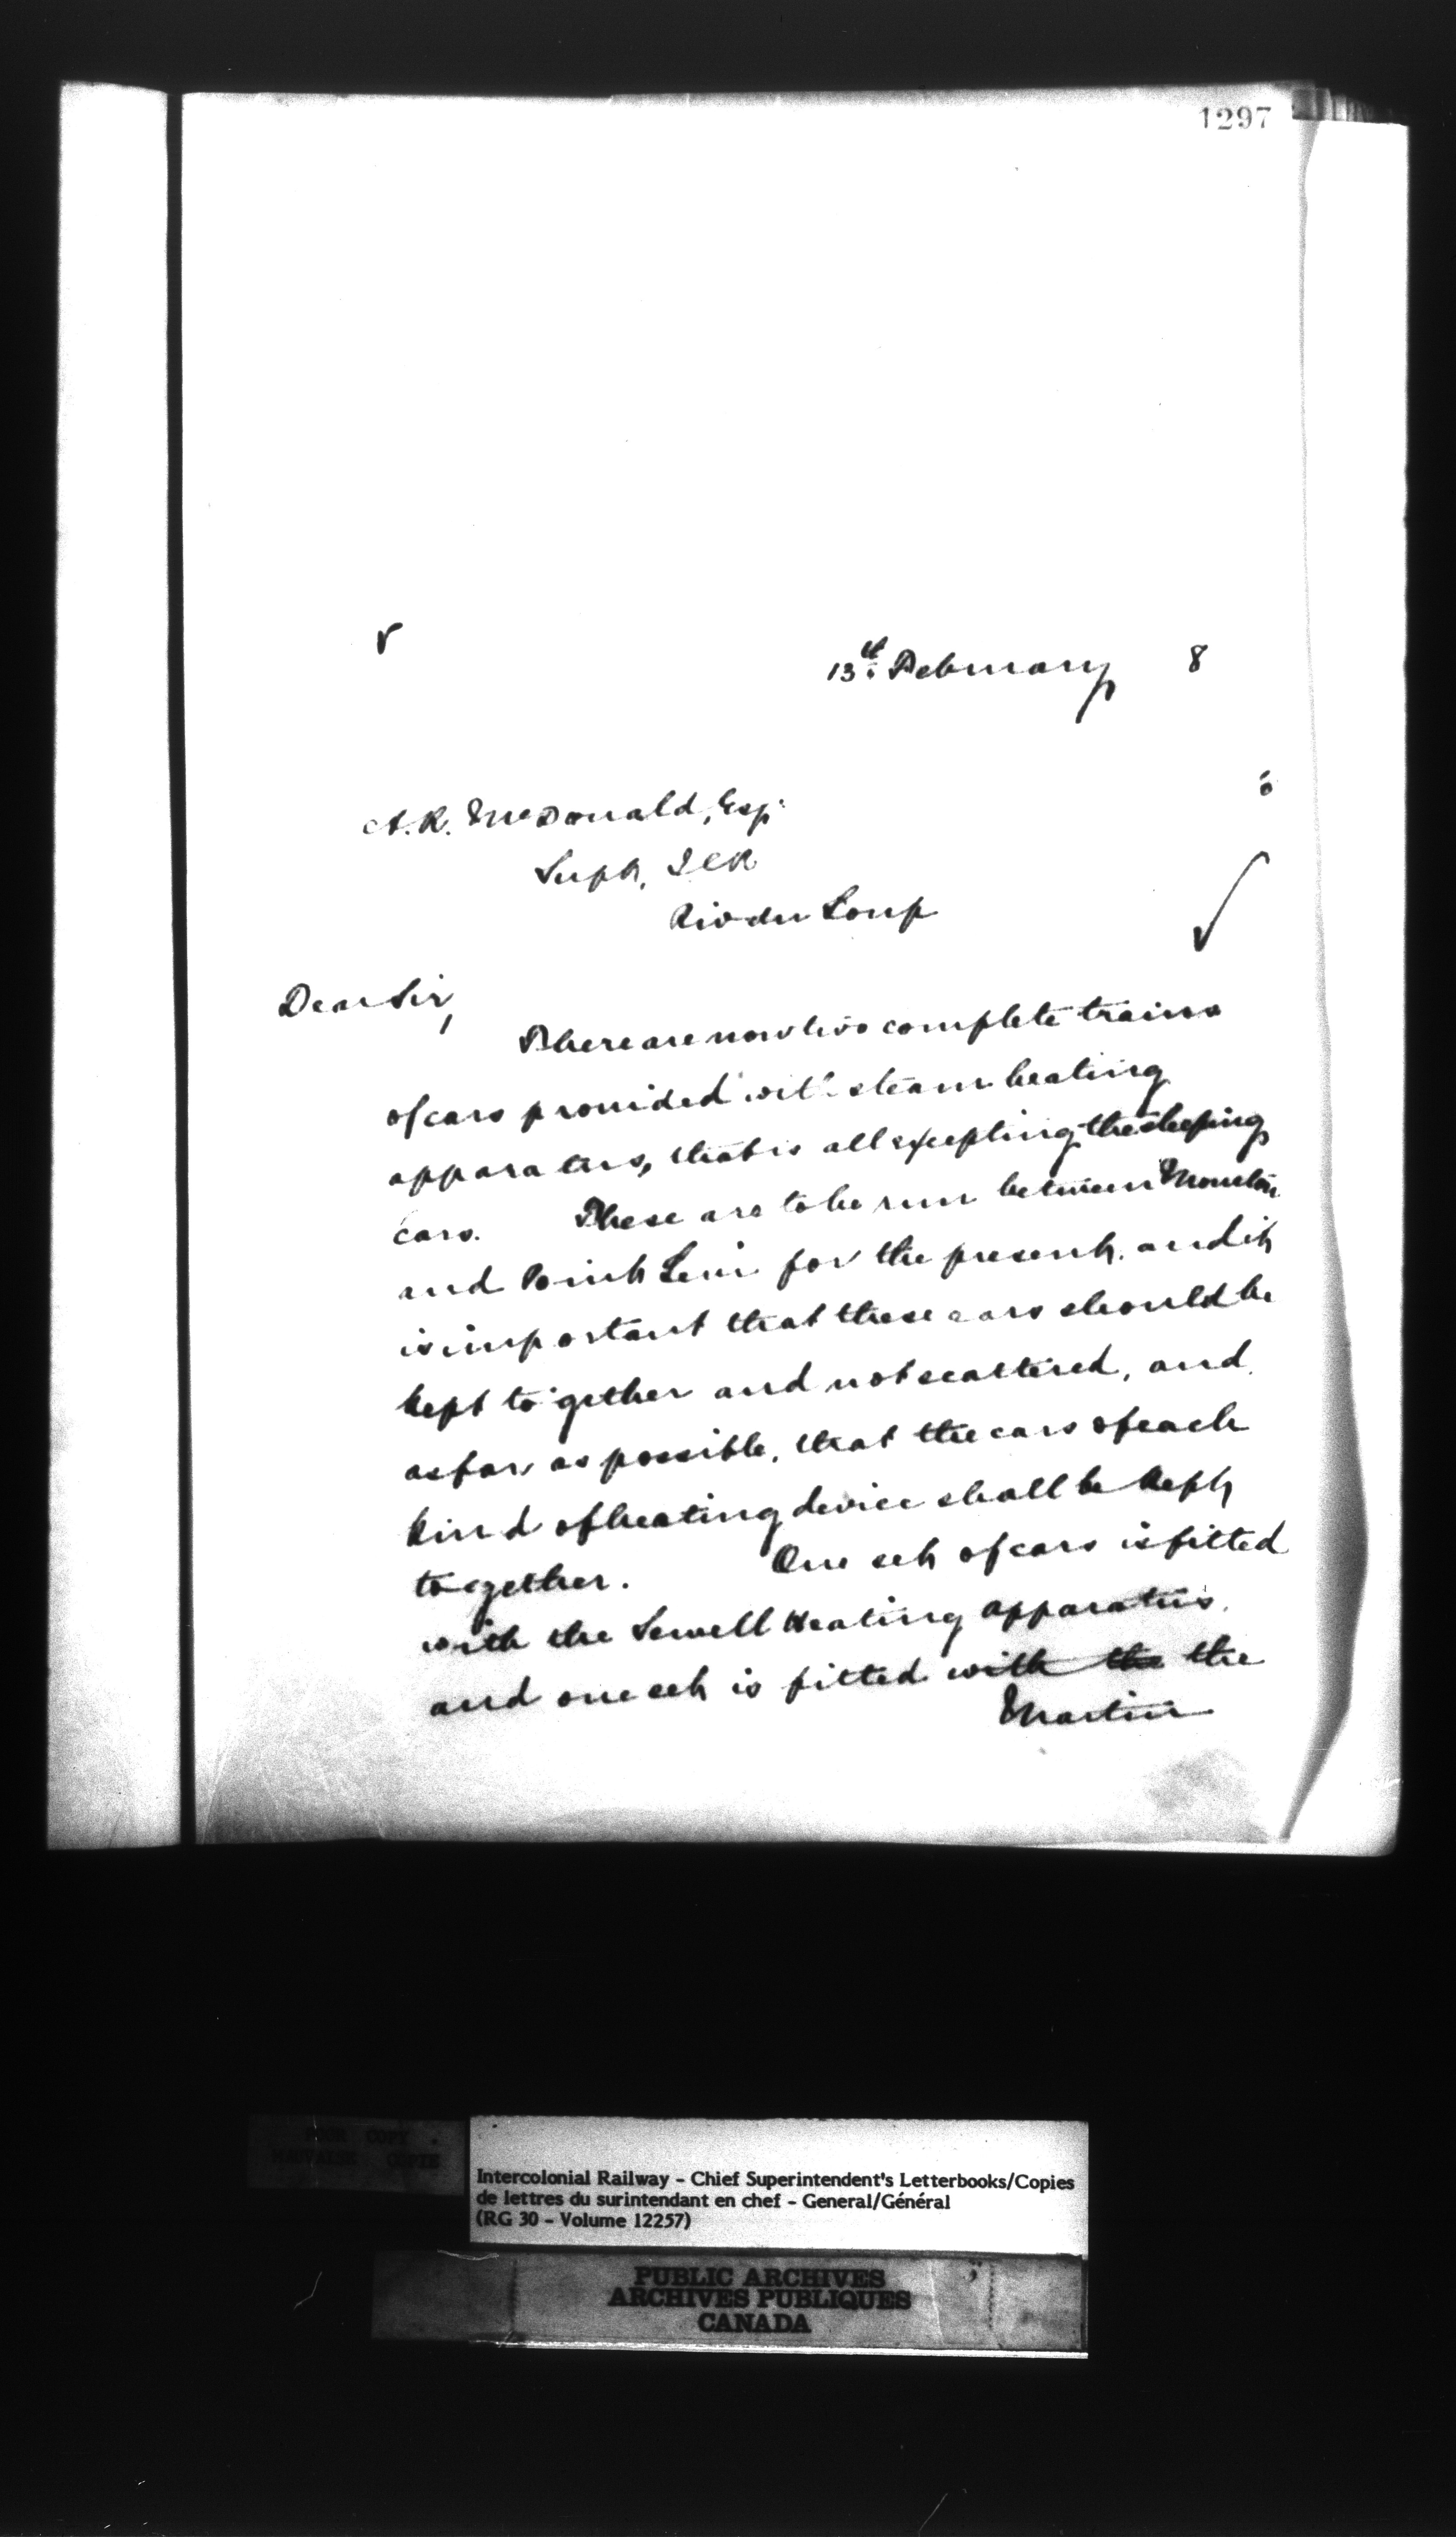 1297
13th. February 8
A. R. McDonald, Esq.
Supt, ICR
Riv du Loup
Dear Sir,
There are now two complete trains
of cars provided with steam heating
apparatus, that is all excepting the sleeping
cars. These are to be run between Moncton
and Point Levi for the present, and it
is important that these cars should be
kept together and not scattered, and
as far as possible, that the cars of each
kind of heating device shall be kept
together. One set of cars is fitted
with the Sewell Heating apparatus,
and one set is fitted with the the
Martin
POOR COPY
MAUVAISE COPIE
Intercolonial Railway - Chief Superintendent's Letterbooks/Copies
de lettres du surintendant en chef - General/Général
(RG 30 - Volume 12257)
PUBLIC ARCHIVES
ARCHIVES PUBLIQUES
CANADA